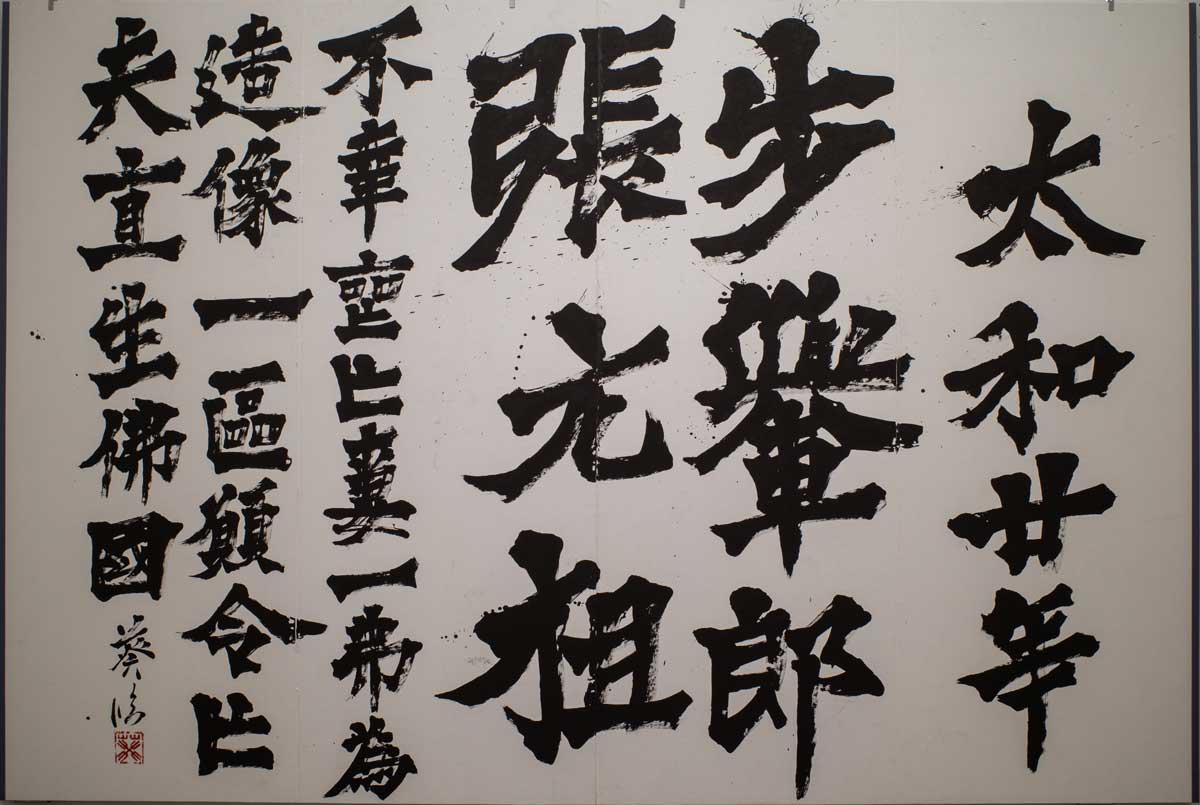 太和廿年
步轝郎
張元祖
不幸喪亡妻一弗為
造像一區願令亡
夫直生佛國
葵